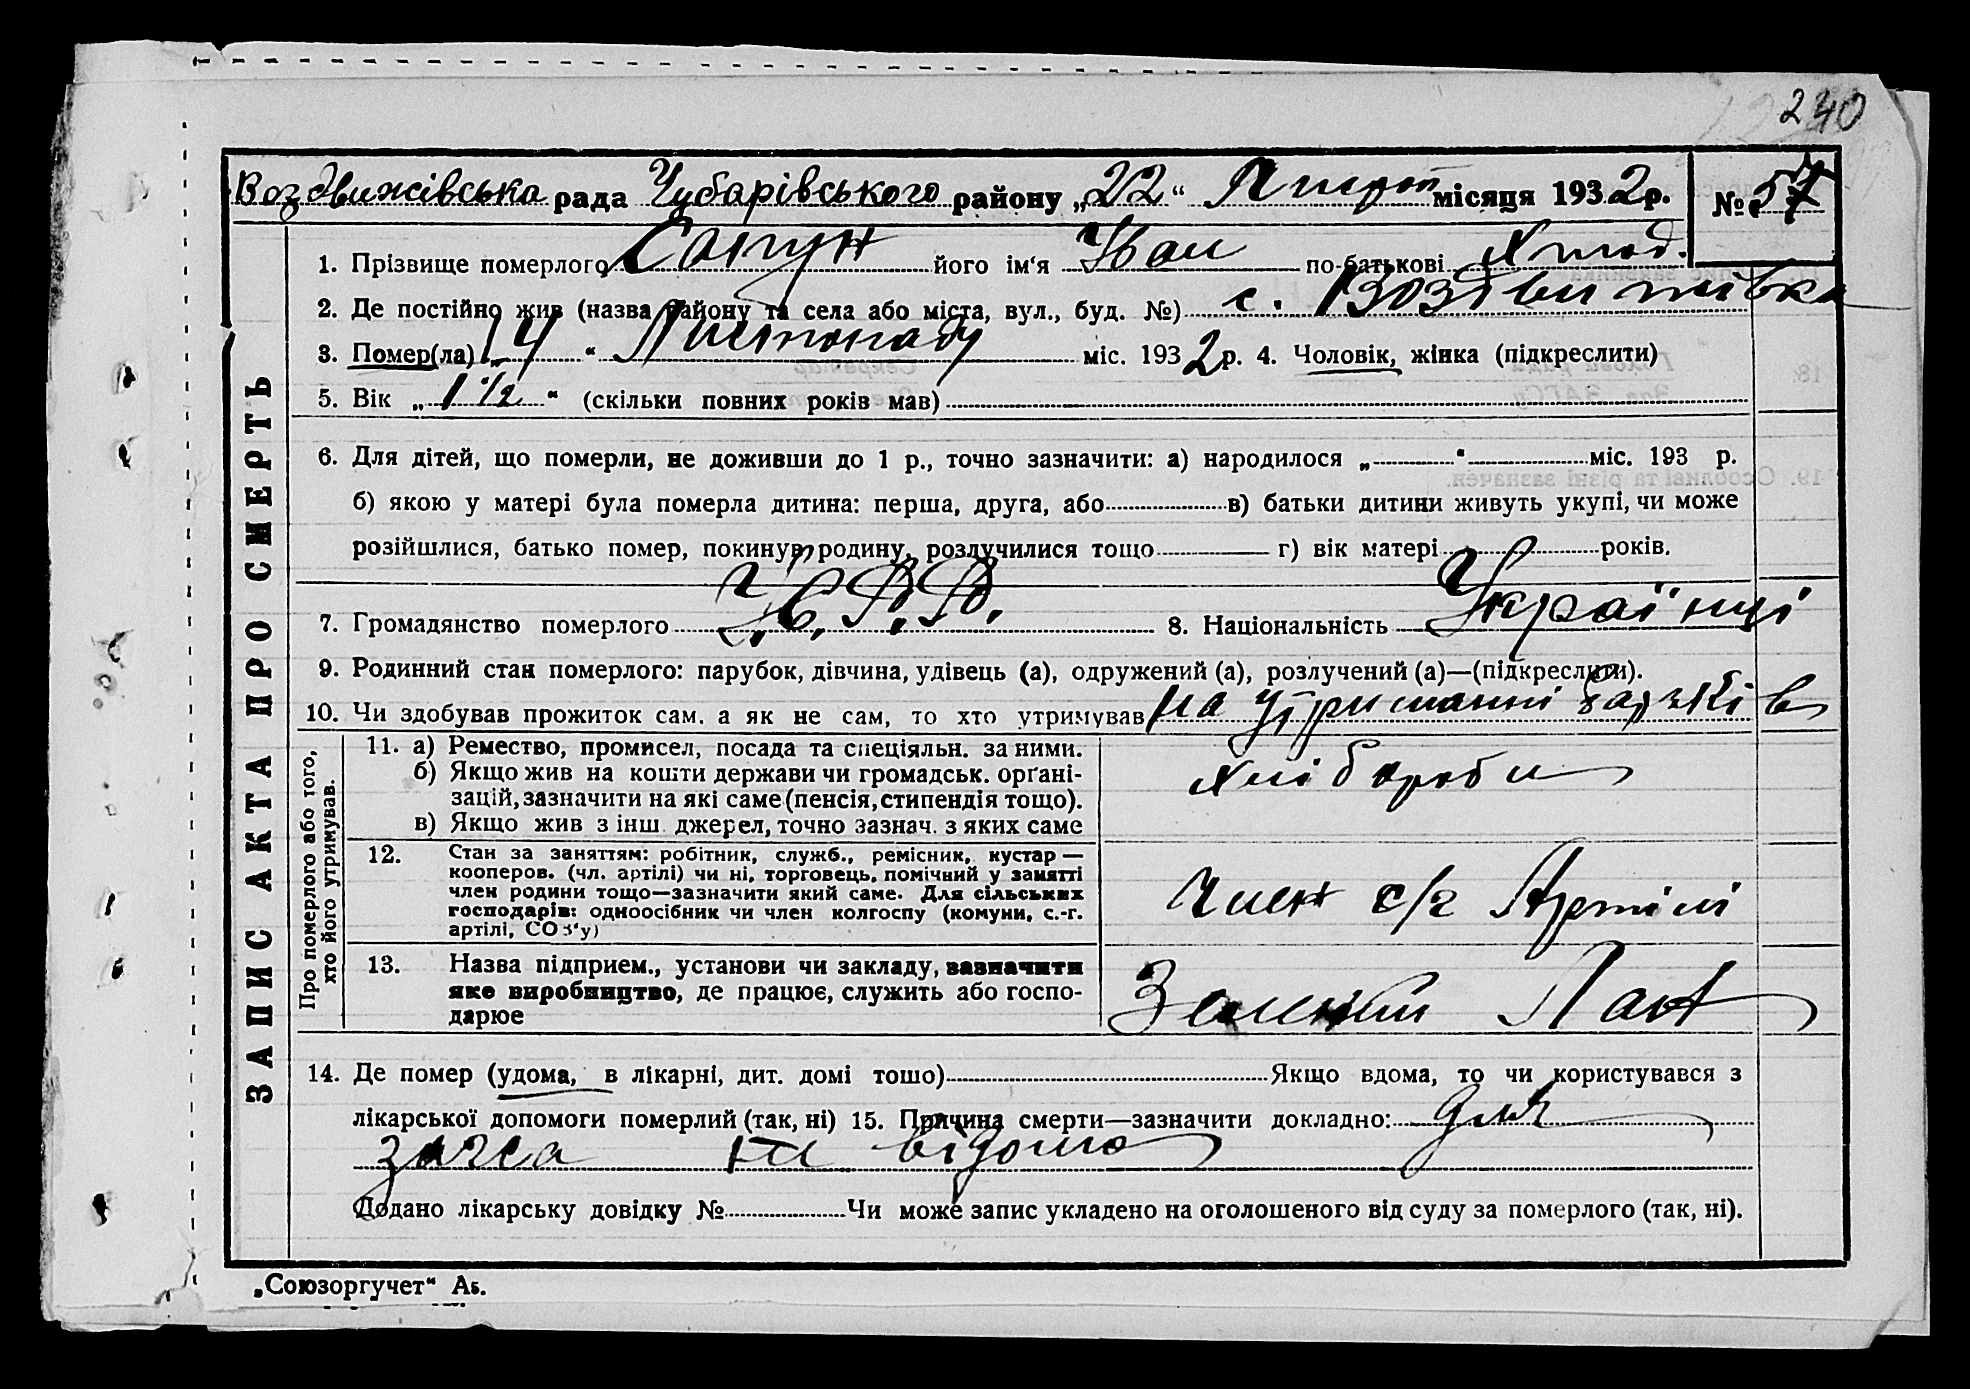 240
Воздвижівська рада Чубарівського району „22“ Листоп місяця 1932 р. № 57
1. Прізвище померлого Сапун його ім‘я Іван по-батькові
2. Де постійно жив (назва району та села або міста, вул., буд. №) с. Воздвижівка
3. Помер(ла) „14“ Листопаду міс. 1932 р. 4. Чоловік, жінка (підкреслити)
5. Вік „1 1/2“ (скільки повних років мав)
6. Для дітей, що померли, не доживши до 1 р., точно зазначити: а) народилося „ “ міс. 193 р.
б) якою у матері була померла дитина: перша, друга, або в) батьки дитини живуть укупі, чи може
розійшлися, батько помер, покинув родину, розлучилися тощо г) вік матері років.
7. Громадянство померлого 8. Національність Українці
9. Родинний стан померлого: парубок, дівчина, удівець (а), одружений (а), розлучений (а)—(підкреслити).
10. Чи здобував прожиток сам. а як не сам, то хто утримував на утриманні батьків
ЗАПИС АКТА ПРО СМЕРТЬ
Про померлого або того,
хто його утримував.
11. а) Ремество, промисел, посада та спеціяльн. за ними.
б) Якщо жив на кошти держави чи громадськ. орґані-
зацій, зазначити на які саме (пенсія, стипендія тощо).
в) Якщо жив з інш. джерел, точно зазнач. з яких саме
Хлібороби
12. Стан за заняттям: робітник, служб., ремісник, кустар—
кооперов. (чл. артілі) чи ні, торговець, помічний у занятті
член родини тощо—зазначити який саме. Для сільських
господарів: одноосібник чи член колгоспу (комуни, с.-г.
артілі, СОЗ‘у)
Член с/г Артілі
13. Назва підприєм., установи чи закладу, зазначити
яке виробництво, де працює, служить або госпо-
дарює
Зелений Лан
14. Де помер (удома, в лікарні, дит. домі тошо) Якщо вдома, то чи користувався з
лікарської допомоги померлий (так, ні) 15. Причина смерти—зазначити докладно: для
загса не відомо
Додано лікарську довідку № Чи може запис укладено на оголошеного від суду за померлого (так, ні).
„Союзоргучет“